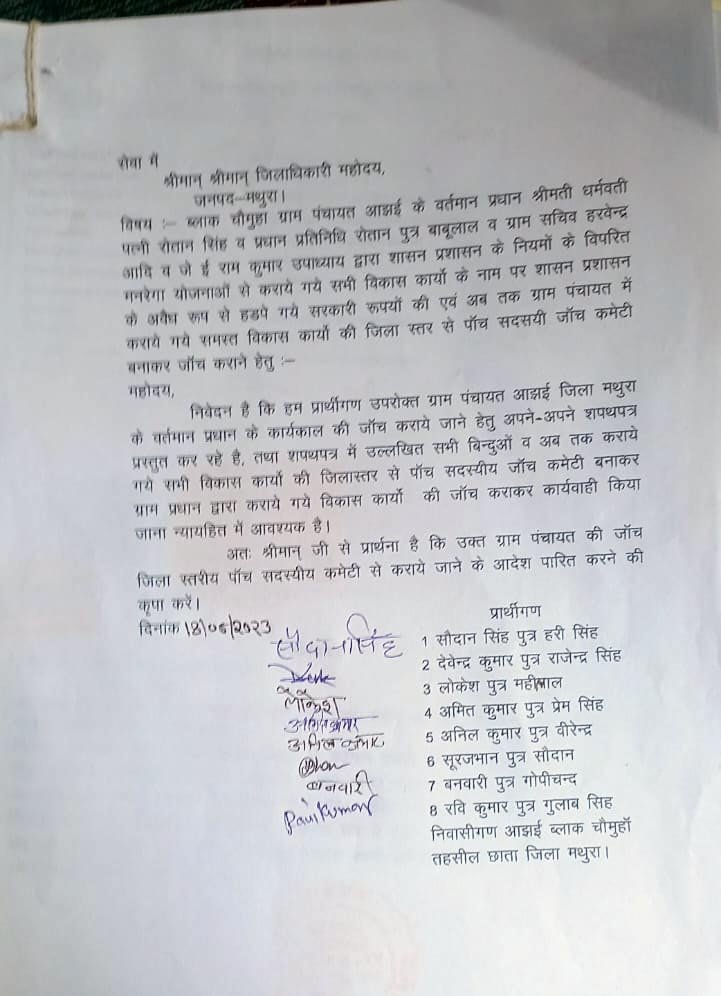 सेवा में
श्रीमान् श्रीमान् जिलाधिकारी महोदय,
जनपद–मथुरा।
विषय :– ब्लाक चौमुहा ग्राम पंचायत आझई के वर्तमान प्रधान श्रीमती धर्मवती
पत्नी रोतान सिंह व प्रधान प्रतिनिधि रोतान पुत्र बाबूलाल व ग्राम सचिव हरवेन्द्र
आदि व जे ई राम कुमार उपाध्याय द्वारा शासन प्रशासन के नियमों के विपरित
मनरेगा योजनाओं से कराये गये सभी विकास कार्यो के नाम पर शासन प्रशासन
के अवैध रूप से हडपे गये सरकारी रूपयों की एवं अब तक ग्राम पंचायत में
कराये गये समस्त विकास कार्यो की जिला स्तर से पॉच सदसयी जॉच कमेटी
बनाकर जॉच कराने हेतु :–
महोदय,
निवेदन है कि हम प्रार्थीगण उपरोक्त ग्राम पंचायत आझई जिला मथुरा
के वर्तमान प्रधान के कार्यकाल की जॉच कराये जाने हेतु अपने-अपने शपथपत्र
प्रस्तुत कर रहे है, तथा शपथपत्र में उल्लखित सभी बिन्दुओं व अब तक कराये
गये सभी विकास कार्यो की जिलास्तर से पॉच सदस्यीय जॉच कमेटी बनाकर
ग्राम प्रधान द्वारा कराये गये विकास कार्यो की जॉच कराकर कार्यवाही किया
जाना न्यायहित में आवश्यक है।
अतः श्रीमान् जी से प्रार्थना है कि उक्त ग्राम पंचायत की जॉच
जिला स्तरीय पॉच सदस्यीय कमेटी से कराये जाने के आदेश पारित करने की
कृपा करें।
दिनांक 18/06/2023
प्रार्थीगण
सौदानसिंह
1 सौदान सिंह पुत्र हरी सिंह
2 देवेन्द्र कुमार पुत्र राजेन्द्र सिंह
लोकेश
3 लोकेश पुत्र महीपाल
अमित कुमार
4 अमित कुमार पुत्र प्रेम सिंह
अनिल कुमार
5 अनिल कुमार पुत्र वीरेन्द्र
6 सूरजभान पुत्र सौदान
बनवारी
7 बनवारी पुत्र गोपीचन्द
Ravi Kumar
8 रवि कुमार पुत्र गुलाब सिह
निवासीगण आझई ब्लाक चौमुहॉ
तहसील छाता जिला मथुरा।